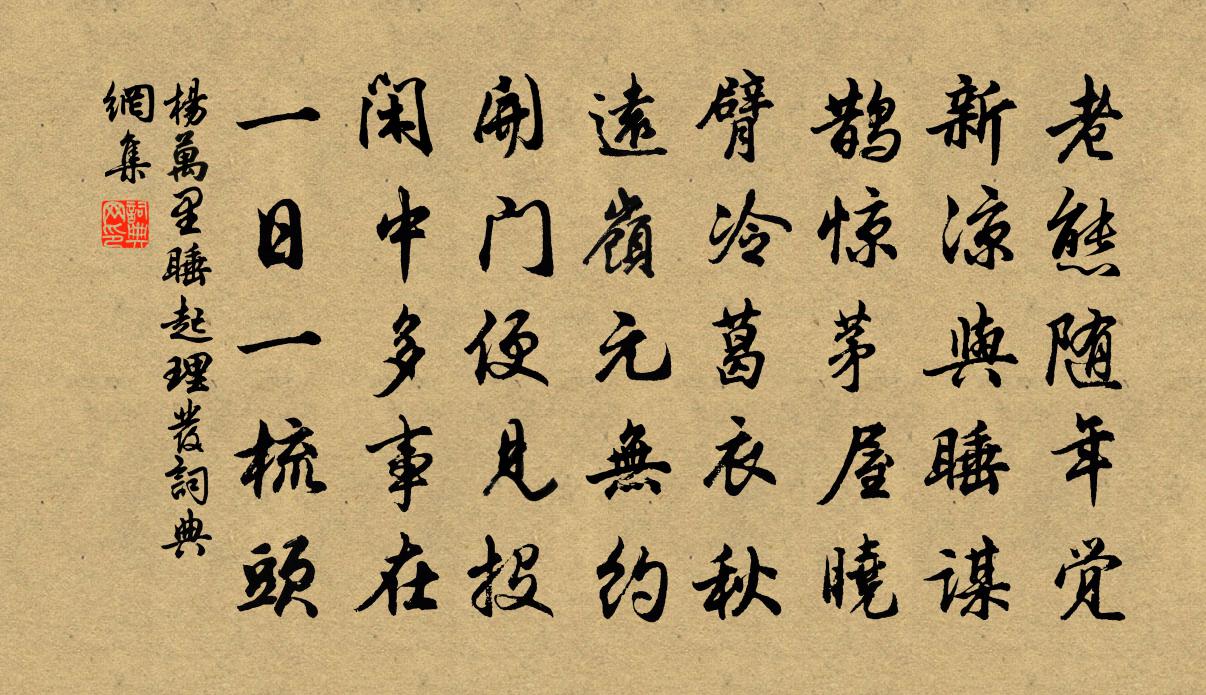 老態随年觉
新涼與睡謀
鹊惊茅屋曉
臂冷葛衣秋
遠嶺元無约
開门便見投
闲中多事在
一日一梳頭
楊萬里睡起理發詞典
網集
詞典
网印